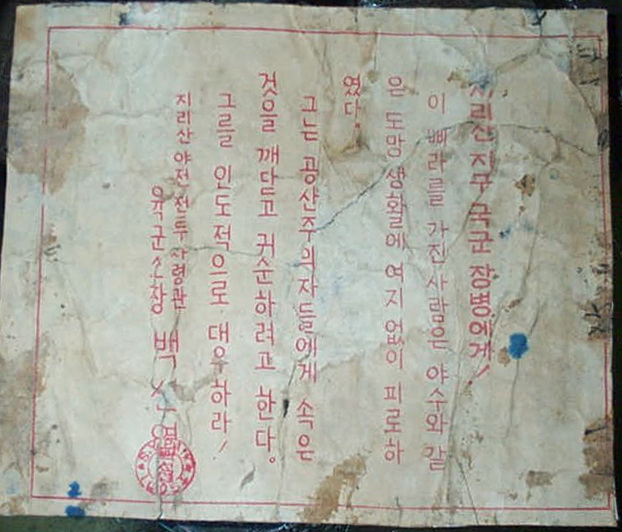 지리산 지구 국군 장병에게!
이 삐라를 가진 사람은 야수와 갈
은 도망생활에 여지없이 피로하
였다.
그는 공산주의자들에게 속은
것을 깨닫고 귀순하려고 한다.
그를 인도적으로 대우하라!
지리산 야전 전투 사령관
육군소장 백선엽